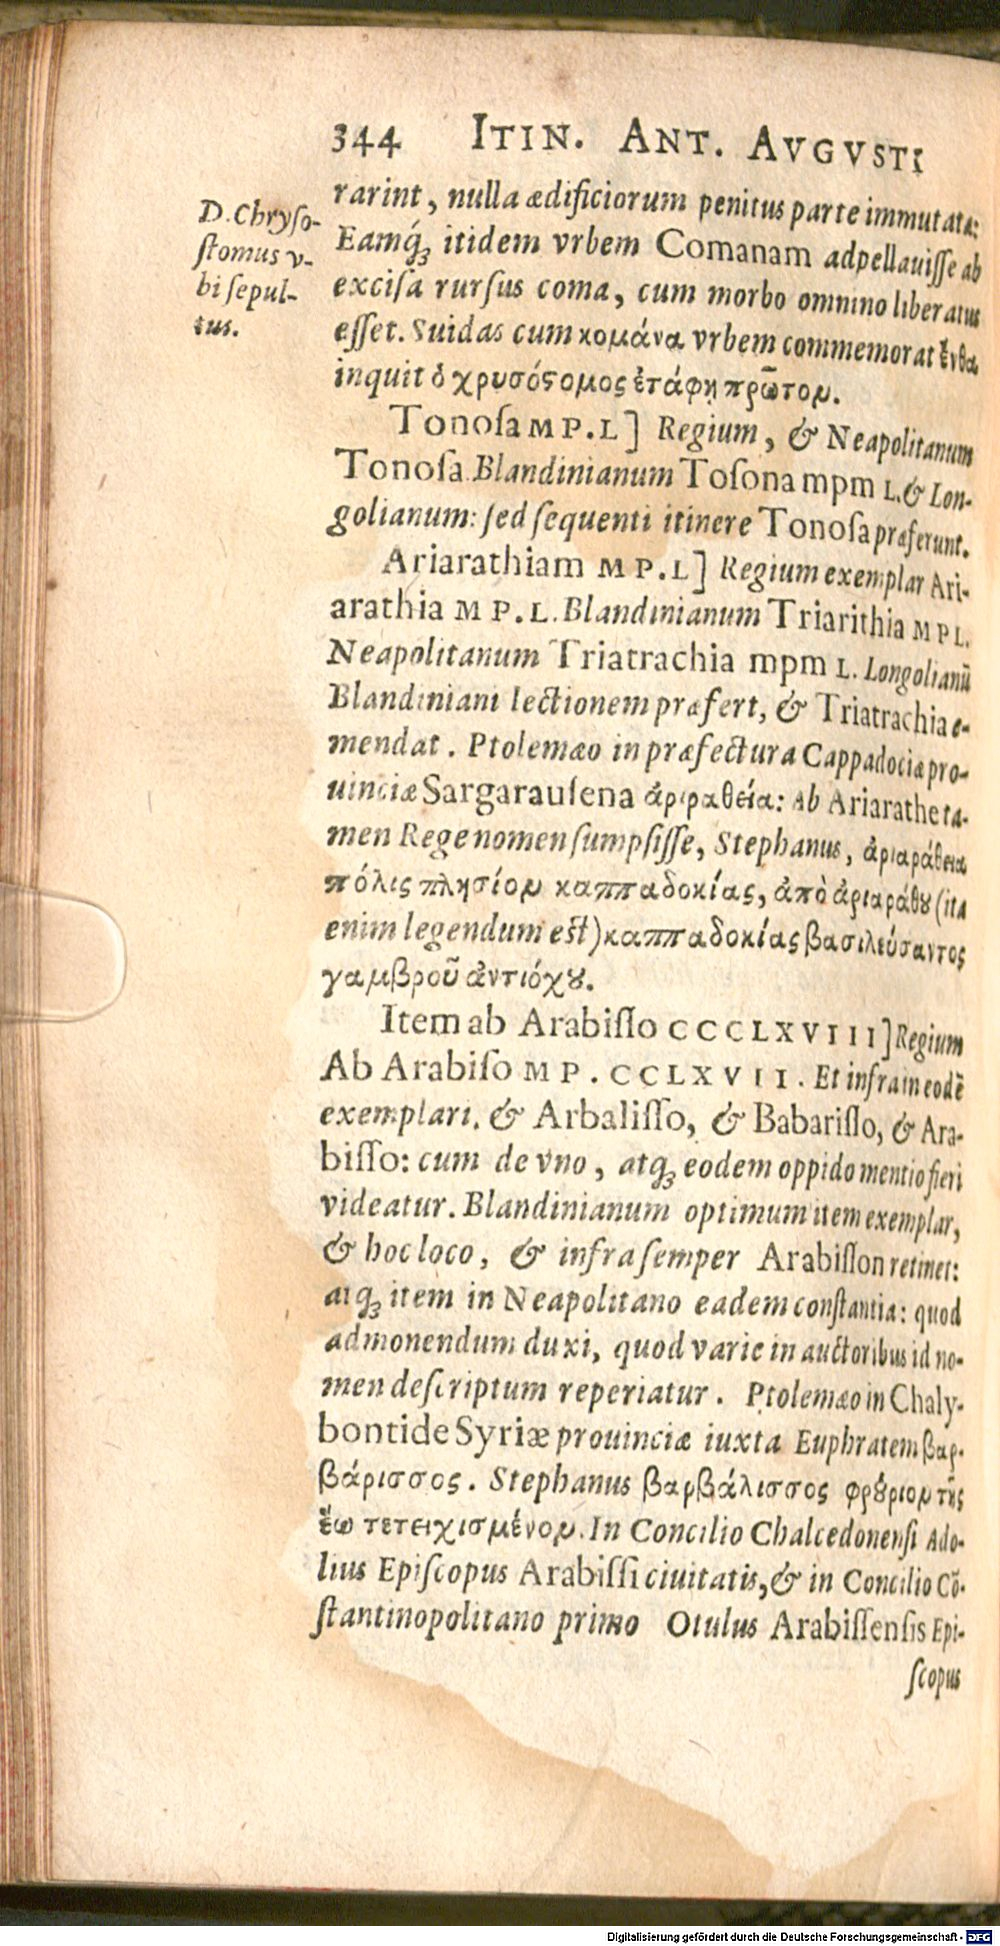 344 ITIN. ANT. AVGVSTI
D. Chryſo-
ſtomus v-
bi ſepul-
tus.
rarint, nulla ædificiorum penitus parte immutata:
Eamq́ꝫ itidem vrbem Comanam adpellauiſſe ab
exciſa rurſus coma, cum morbo omnino liberatus
eſſet. Suidas cum κομάνα vrbem commemorat ἔνθα
inquit ὁ χρυσόϛομος ἐτάφη πρῶτον.
Tonoſa MP.L] Regium, & Neapolitanum
Tonoſa. Blandinianum Toſona mpm L. & Lon-
golianum: ſed ſequenti itinere Tonoſa præferunt.
Ariarathiam MP.L] Regium exemplar Ari-
arathia MP.L. Blandinianum Triarithia MPL.
Neapolitanum Triatrachia mpm L. Longolianū
Blandiniani lectionem præfert, & Triatrachia e-
mendat. Ptolemæo in præfectura Cappadociæ pro-
uinciæ Sargarauſena ἀριραθεία: Ab Ariarathe ta-
men Rege nomen ſumpſiſſe, Stephanus, ἀριαράθεια
πόλις πλησίον καππαδοκίας, ἀπὸ ἀριαράθȣ (ita
enim legendum eſt) καππαδοκίας βασιλεύσαντος
γαμβροῦ ἀντιόχȣ.
Item ab Arabiſſo CCCLXVIII] Regium
Ab Arabiſo MP. CCLXVII. Et infra in eodē
exemplari. & Arbaliſſo, & Babariſſo, & Ara-
biſſo: cum de vno, atqꝫ eodem oppido mentio fieri
videatur. Blandinianum optimum item exemplar,
& hoc loco, & infra ſemper Arabiſſon retinet:
atqꝫ item in Neapolitano eadem conſtantia: quod
admonendum duxi, quod varie in auctoribus id no-
men deſcriptum reperiatur. Ptolemæo in Chaly-
bontide Syriæ prouinciæ iuxta Euphratem βαρ-
βάρισσος. Stephanus βαρβάλισσος φρȣ́ριον τῆς
ἕω τετειχισμένον. In Concilio Chalcedonenſi Ado-
lius Epiſcopus Arabiſſi ciuitatis, & in Concilio Cō-
ſtantinopolitano primo Otulus Arabiſſenſis Epi-
ſcopus
Digitalisierung gefördert durch die Deutsche Forschungsgemeinschaft - DFG